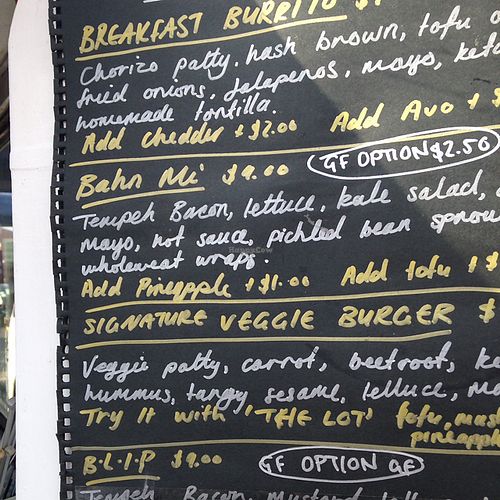 BREAKFAST BURRITO $
Chorizo patty, hash brown, tofu
fried onions, Jalapenos, mayo,
homemade tortilla.
Add Chedder +$2.00 Add Avo + $
GF OPTION $2.50
Bahn Mi $9.00
Tempeh Bacon, lettuce, kale salad,
mayo, hot sauce, pickled bean
wholeweat wraps.
Add Pineapple +$1.00 Add tofu + $
SIGNATURE VEGGIE BURGER $
Veggie patty, carrot, beetroot,
hummus, tangy sesame, lettuce,
Try It with 'THE LOT' tofu,
pineapple
B.L.I.P $9.00 GF OPTION GF
Tempeh Bacon, Mustard,